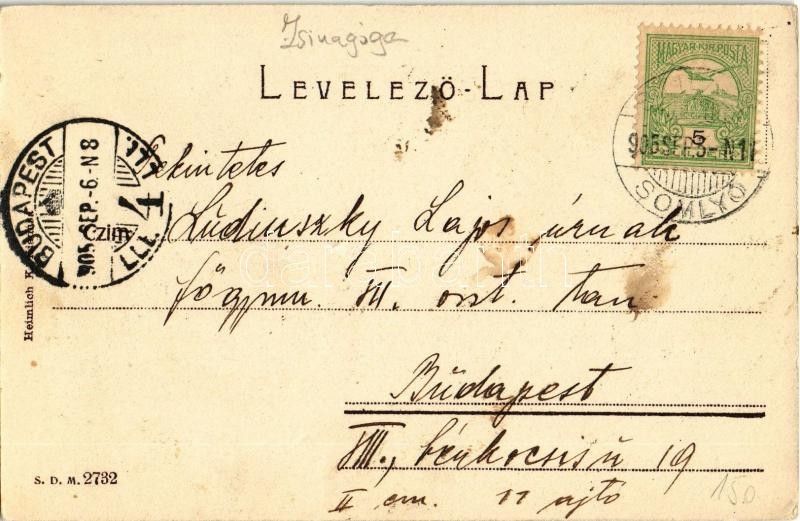 Zsinagóga
LEVELEZŐ-LAP
MAGYAR KIR. POSTA
5
905 SEP. 5 - N1
SOMLYÓ
BUDAPEST
905 SEP. -6. -N8
4
Tekintetes
Czim
Ludinszky Lajos úrnak
főgymn. III. oszt. tan.
Budapest
VIII., bérkocsis ú 19
II em. 11 ajtó
Heimlich K
S. D. M. 2732
150
darabanth